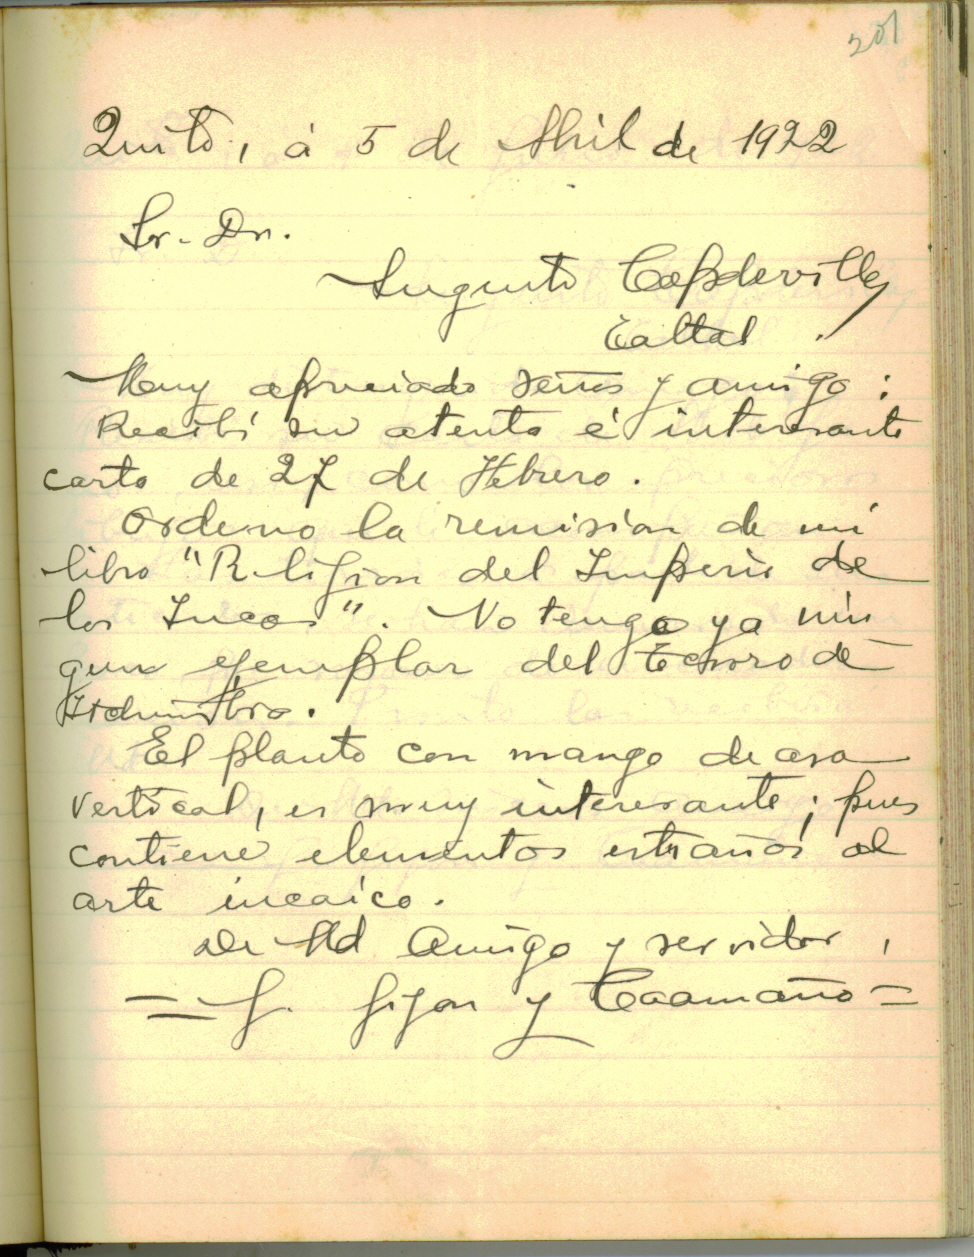 201
Quito, á 5 de Abril de 1922
Sr. Dn.
Augusto Capdeville
Taltal.
Muy apreciado señor y amigo:
Recibí su atenta é interesante
carta de 27 de Febrero.
Ordeno la remision de mi
libro "Religion del Imperio de
los Incas". No tengo ya nin
gun ejemplar del Tesoro de
Itchimbía.
El planto con mango de asa
vertical, es muy interesante; pues
contiene elementos estraños al
arte incaico.
De Ud Amigo y servidor,
= J. Jijon y Caamaño =